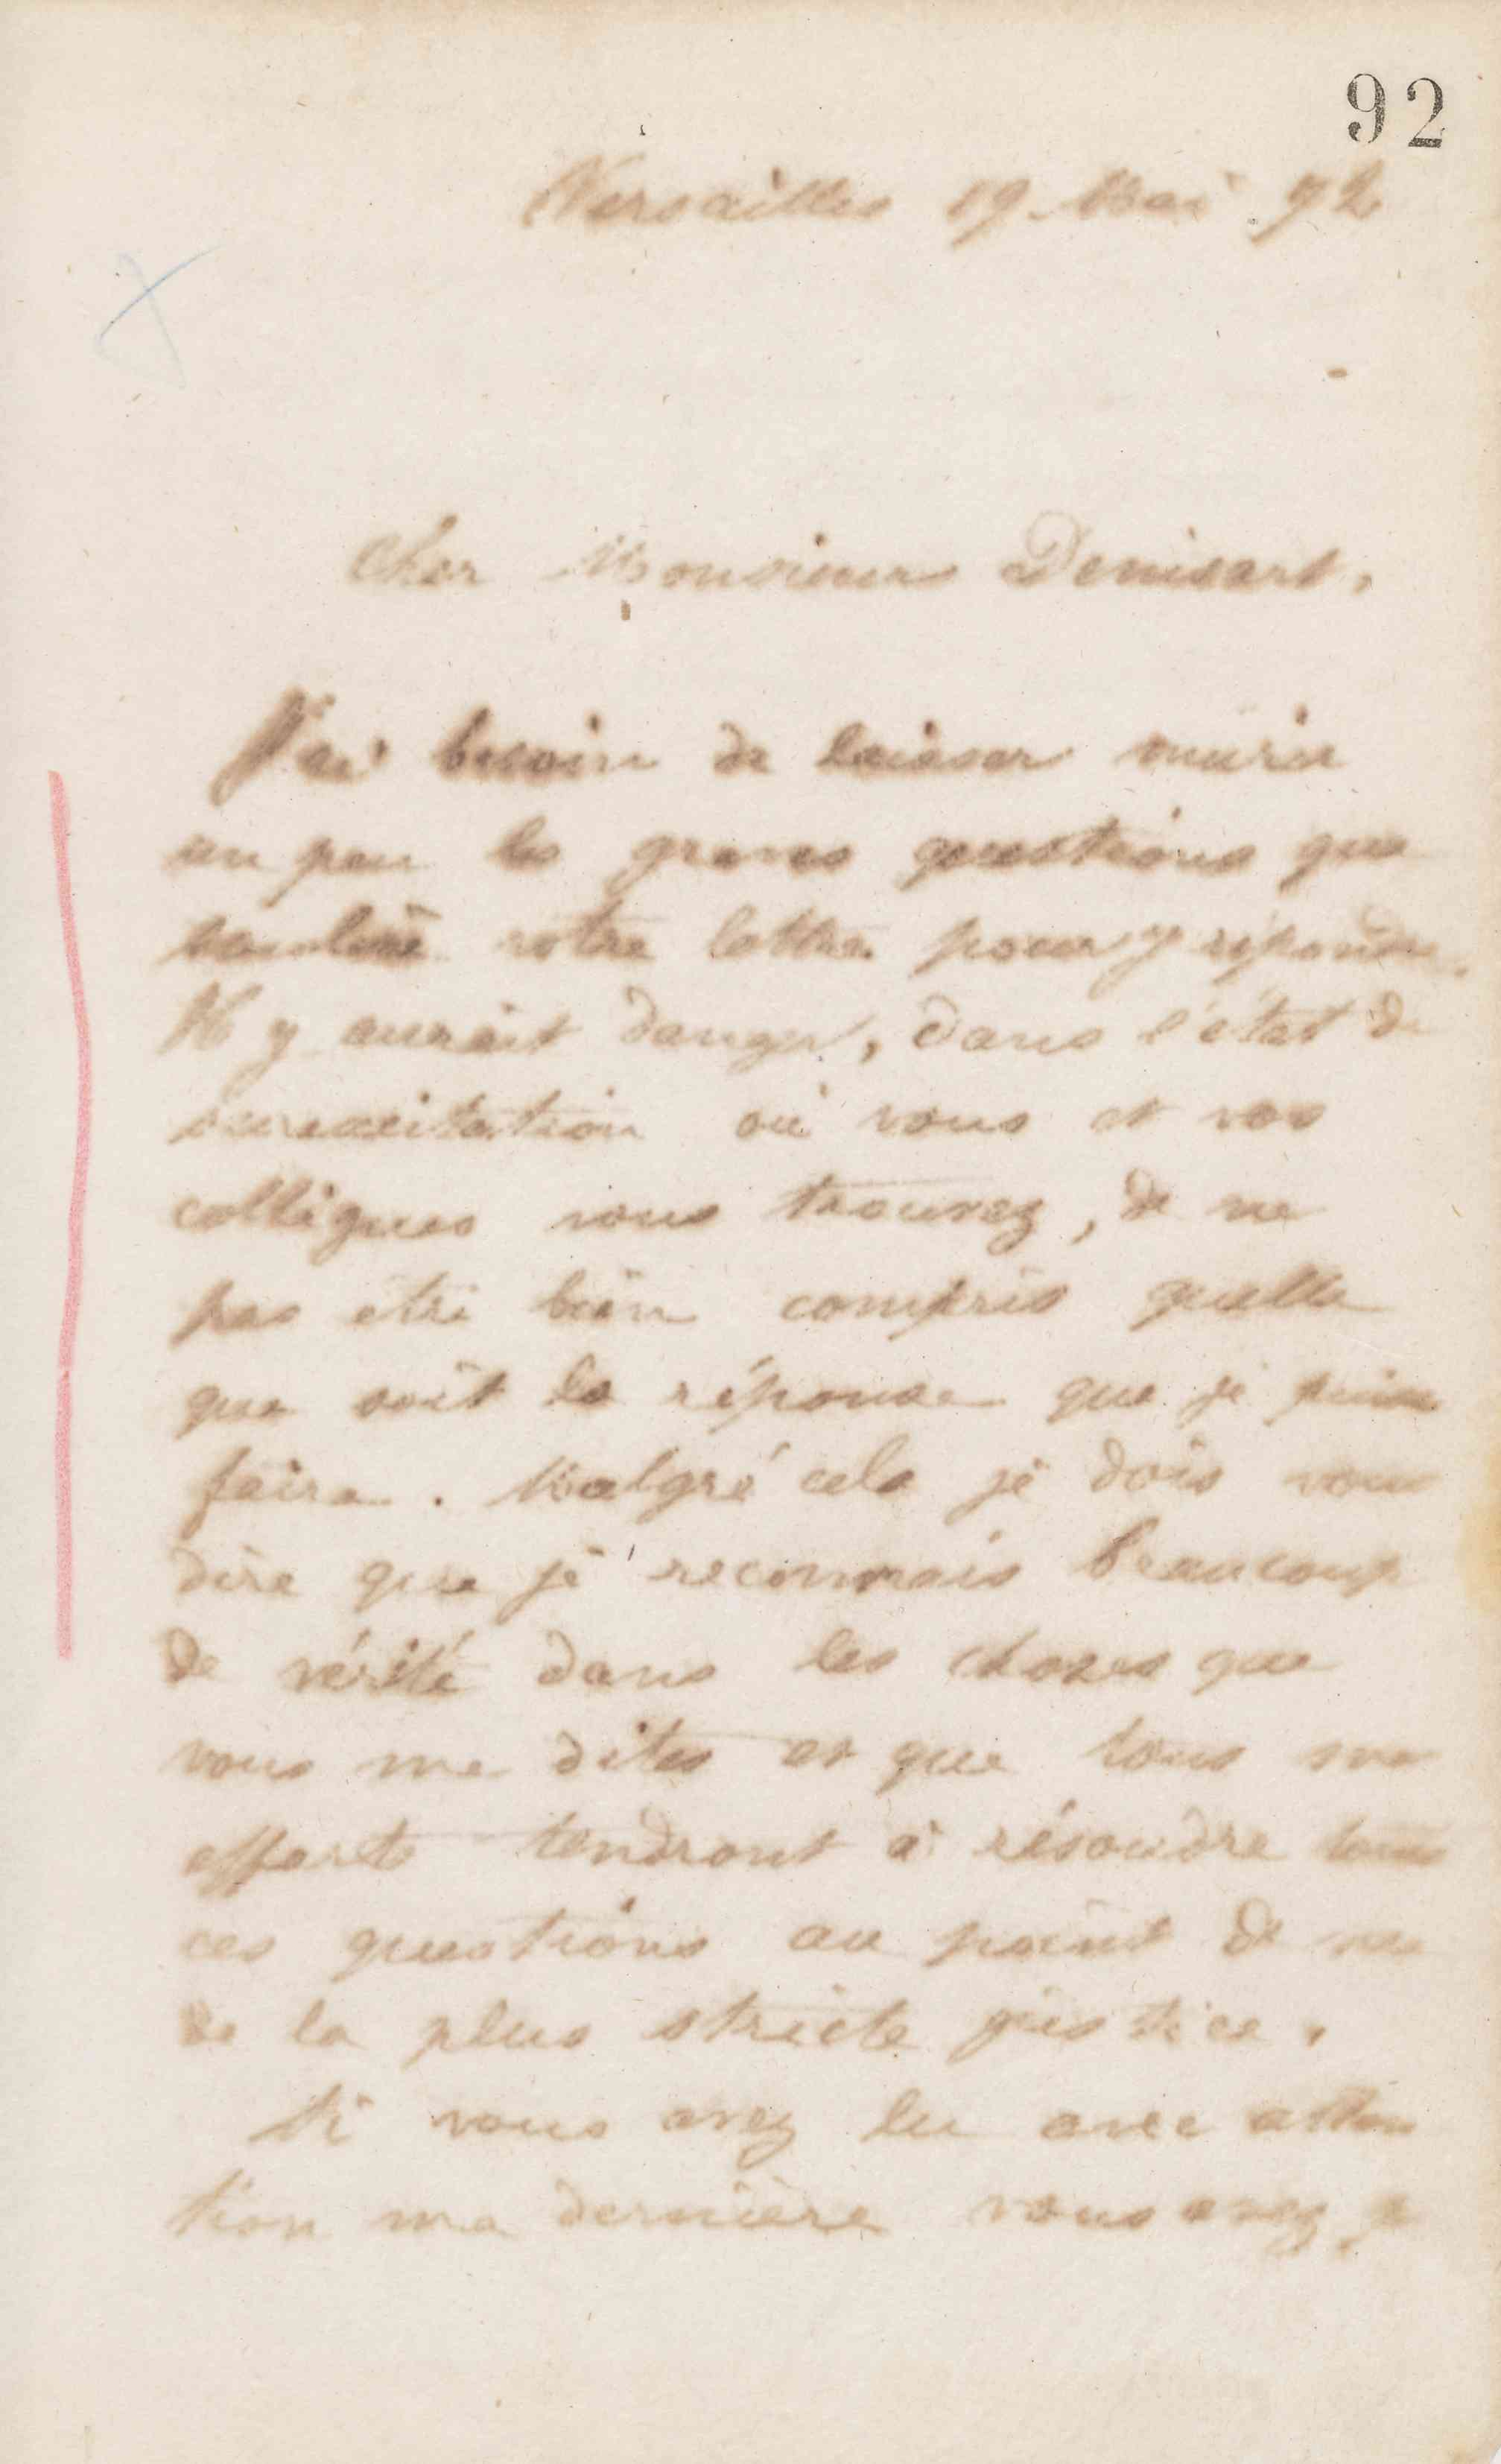 92
Versailles 19 Mai 72
Cher Monsieur Denisart,
J'ai besoin de laisser murir
un peu les graves questions que
soulève votre lettre pour y répondre.
Il y aurait danger, dans l'état de
surexcitation où vous et vos
collègues vous trouvez, de ne
pas être bien compris quelle
que soit la réponse que je puisse
faire. Malgré cela je dois vous
dire que je reconnais beaucoup
de vérité dans les choses que
vous me dites et que tous mes
efforts tendront à résoudre toutes
ces questions au point de vue
de la plus stricte justice.
Si vous avez lu avec atten
tion ma dernière vous avez